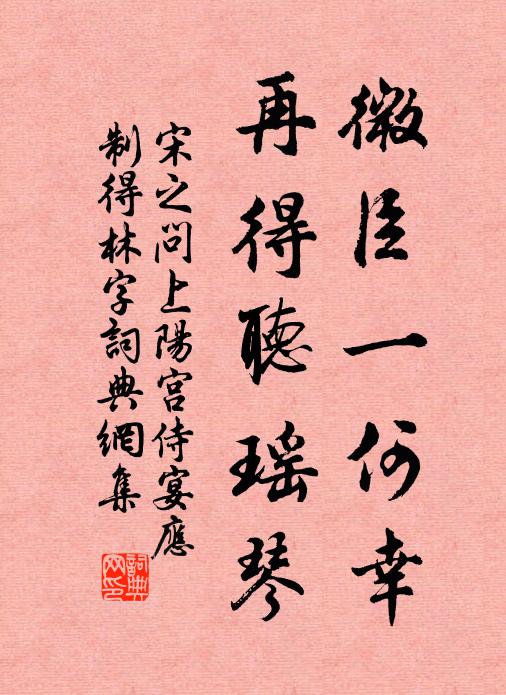 微臣一何幸
再得聽瑶琴
宋之问上陽宫侍宴應
制得林字詞典網集
詞典
网印